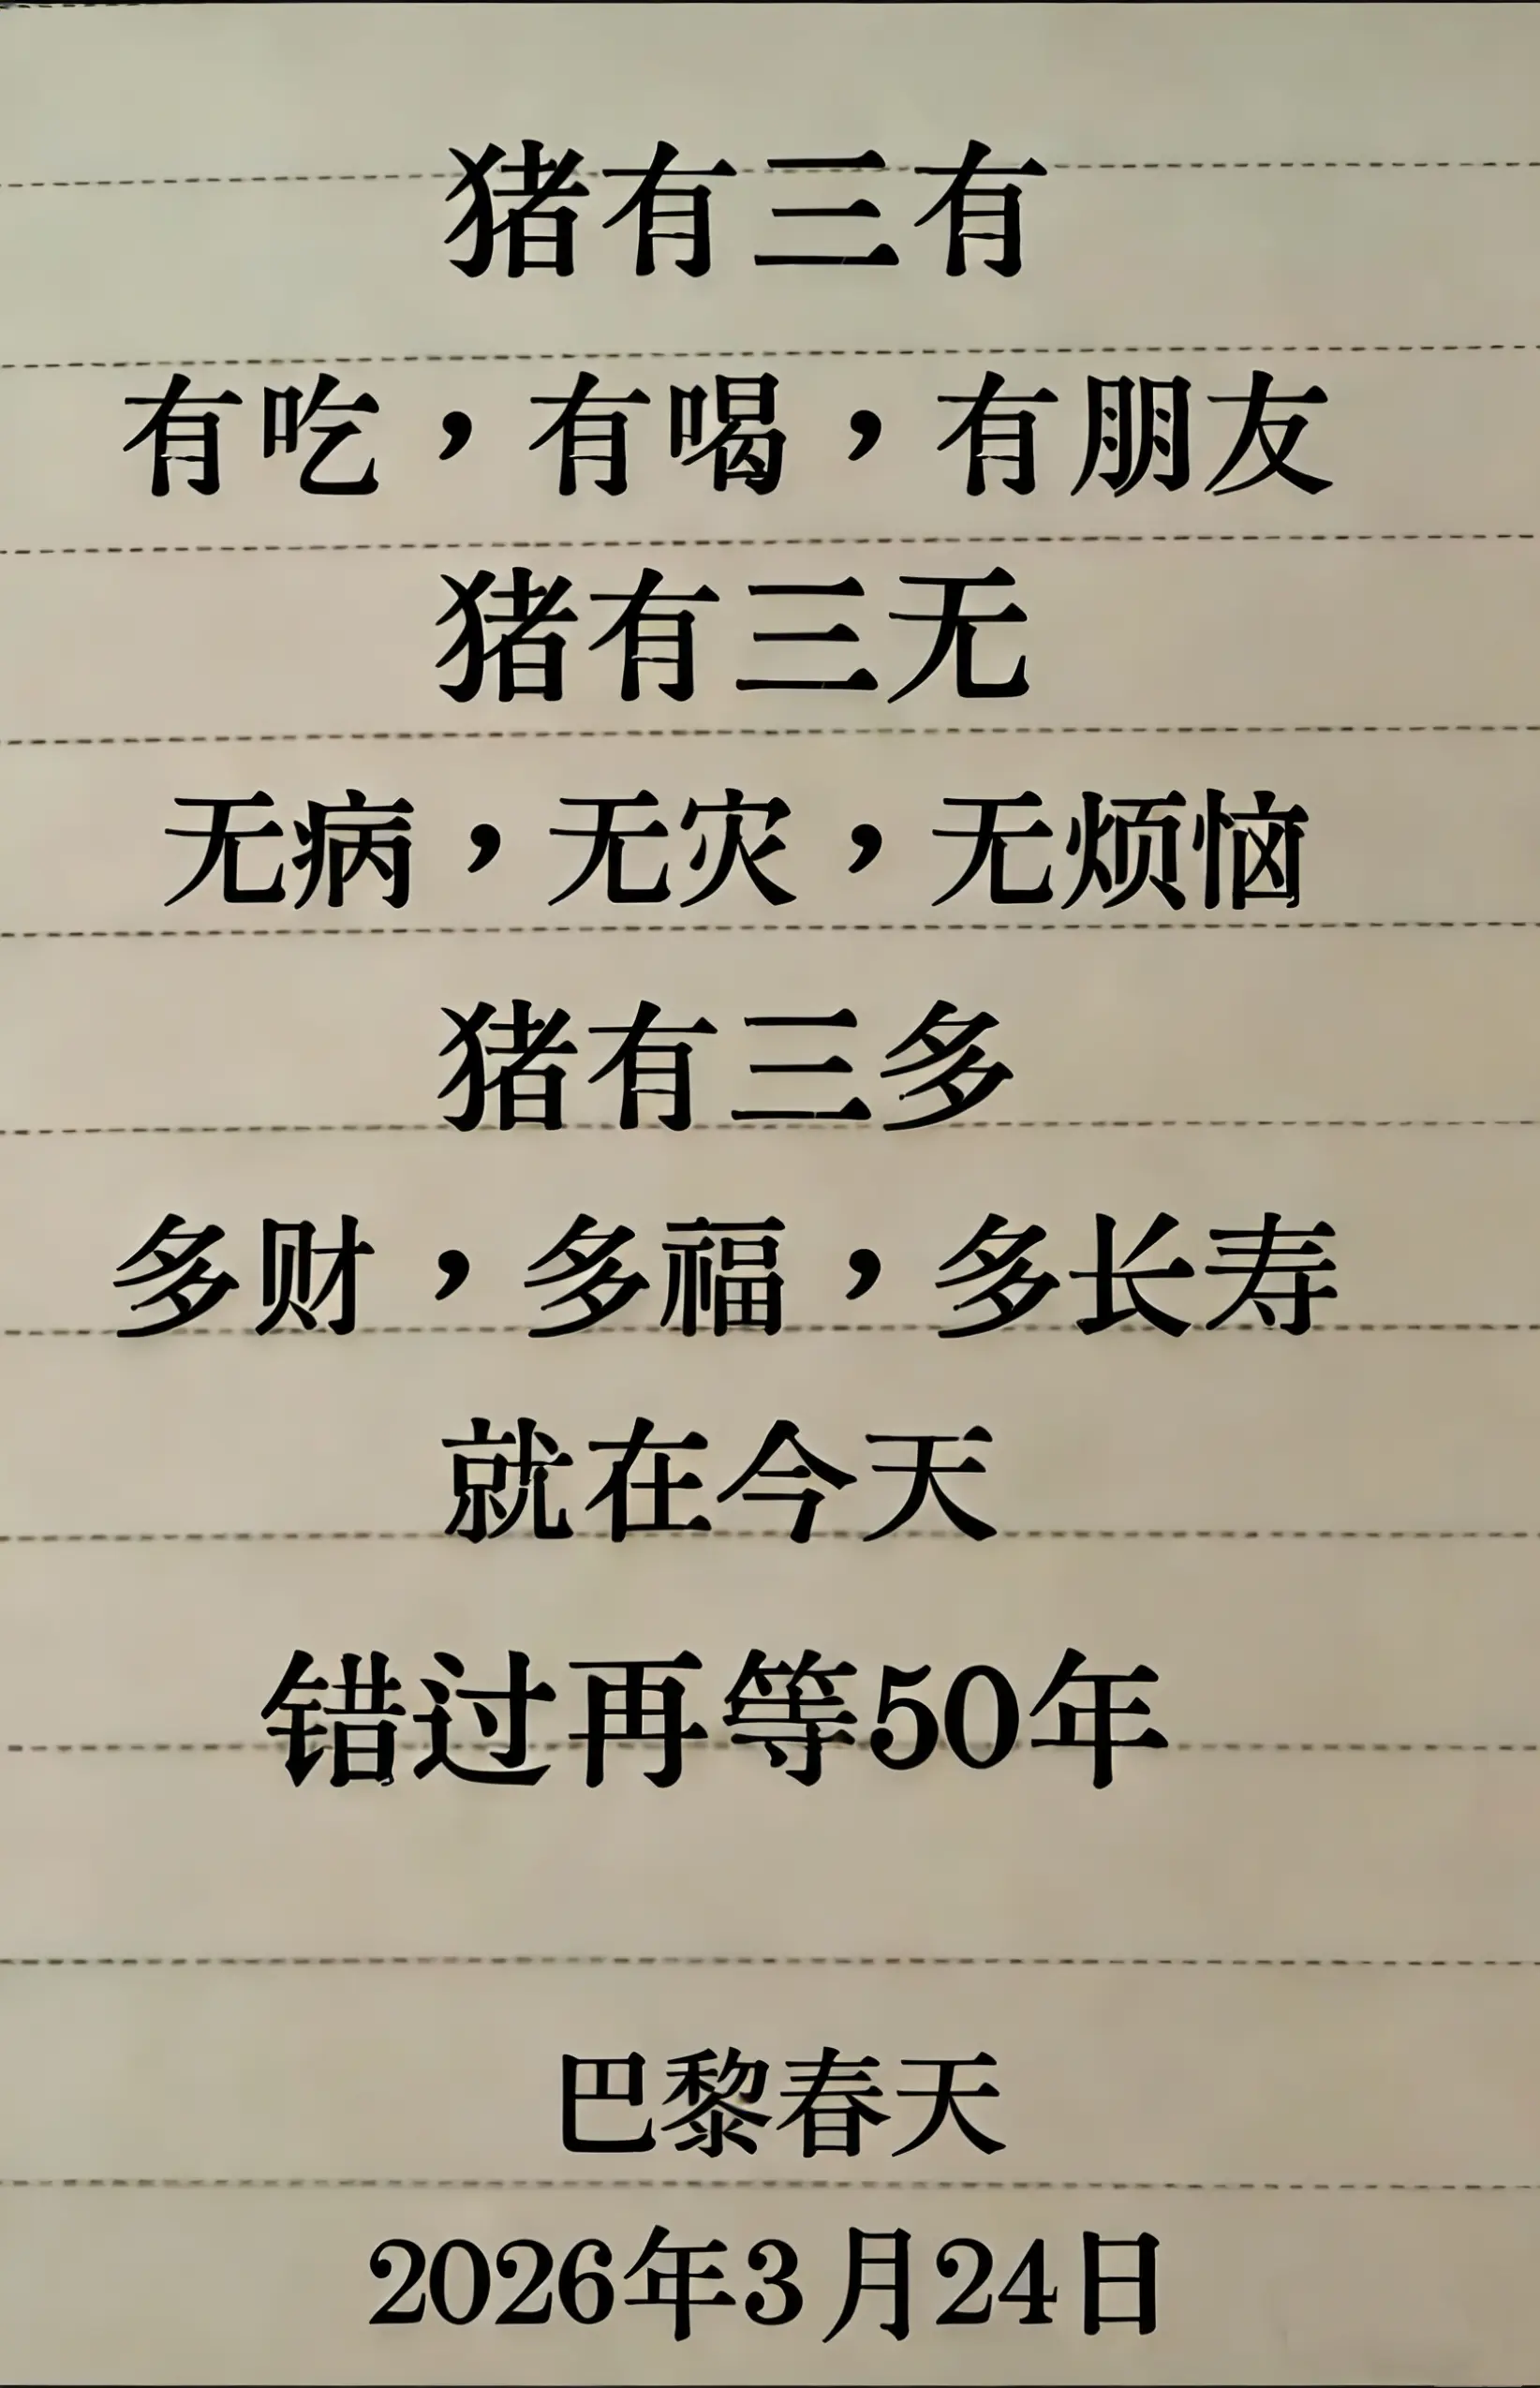 猪有三有
有吃，有喝，有朋友
猪有三无
无病，无灾，无烦恼
猪有三多
多财，多福，多长寿
就在今天
错过再等50年
巴黎春天
2026年3月24日